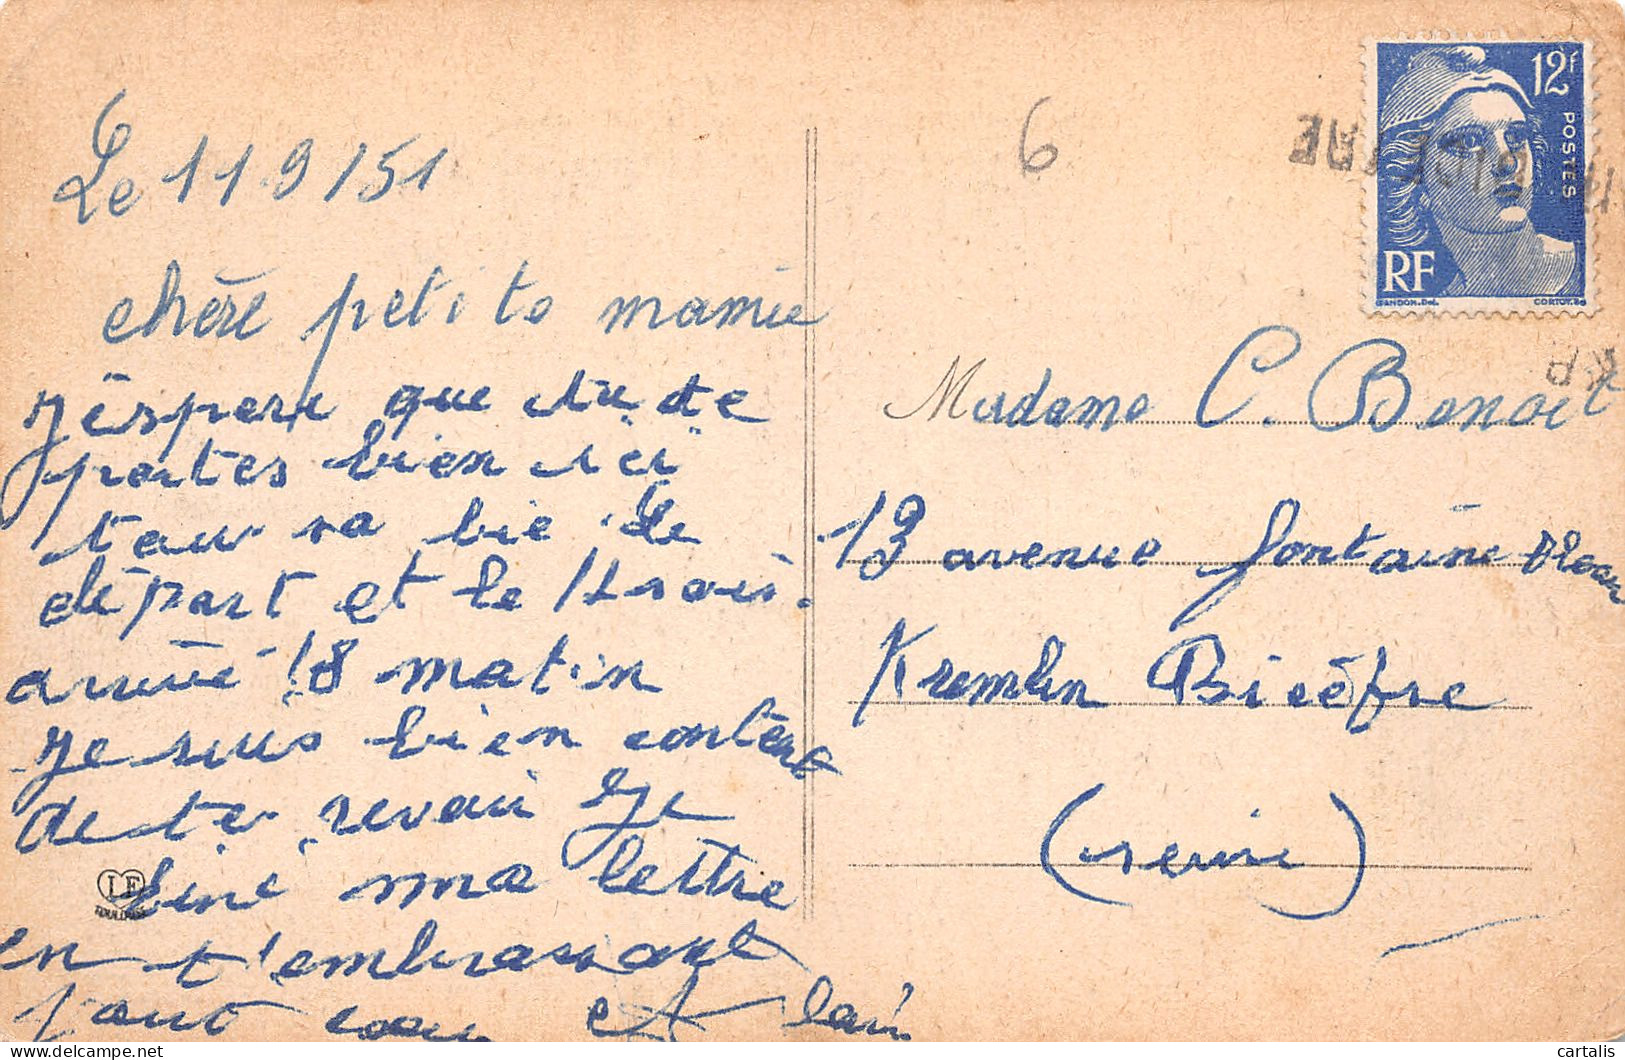 Le 11 9 / 51
chère petite mamie
j'éspere que tu te
portes bien ici
tau va bie le
départ et le trois.
arrivé 18 matin
je suis bien contente
de te revoir je
finé ma lettre
en t'embrassant
6
12f
POSTES
RF
GANDON.Del.
CORTOT.Sc
Madame C. Benoit
13 avenue fontaine bleau
Kremlin Bicêtre
(seine)
LE
TOULOUSE
cartalis